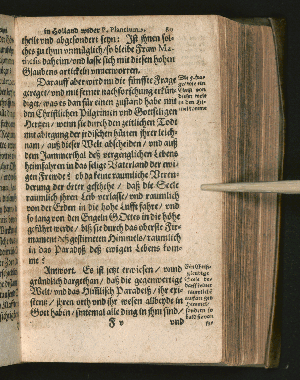 in Holland wider P. Plancium. 89
theile vnd abgesondert seyn: Ist jhnen sol-
ches zu thun vnmüglich/ so bleibe Fraw Ma-
daheim/ vnd lasse sich mit diesen hohen
Glaubens artickeln vnverworren.
Darauff aber wird nu die fünffte Frage
gereget/ vnd mit ferner nachforschung erkün-
diget/ was es dan für einen zustand habe mit
den Christlichen Pilgrimen vnd Gottseligen
Hertzen/ wenn sie durch den zeitlichen Todt
mit ablegung der jrdischen hütten jhrer leich-
nam/ auß dieser Welt abscheiden/ vnd auß
dem Jammerthal deß vergenglichen Lebens
heimfahren in das selige Vaterland der ewi-
gen Frewde? ob da keine raumliche Veren-
derung der örter geschehe/ daß die Seele
raumlich jhren Leib verlasse/ vnd raumlich
von der Erden in die hohe Lufft fahre/ vnd
so lang von den Engeln Gottes in die höhe
geführt werde/ biß sie durch das oberste Fir-
mament deß gestirneten Himmels/ raumlich
in das Paradyß deß ewigen Lebens kom-
me?
Antwort. Es ist jetzt erwiesen/ vnnd
gründlich dargethan/ daß die gegenwertige
Welt/ vnd das Himlisch Paradeiß/ jhr exi-
stens/ jhren orth vnd jhr wesen allbeyde in
Gott haben/ sintemal alle ding in jhm sind/
F v vnd
Die
Frage